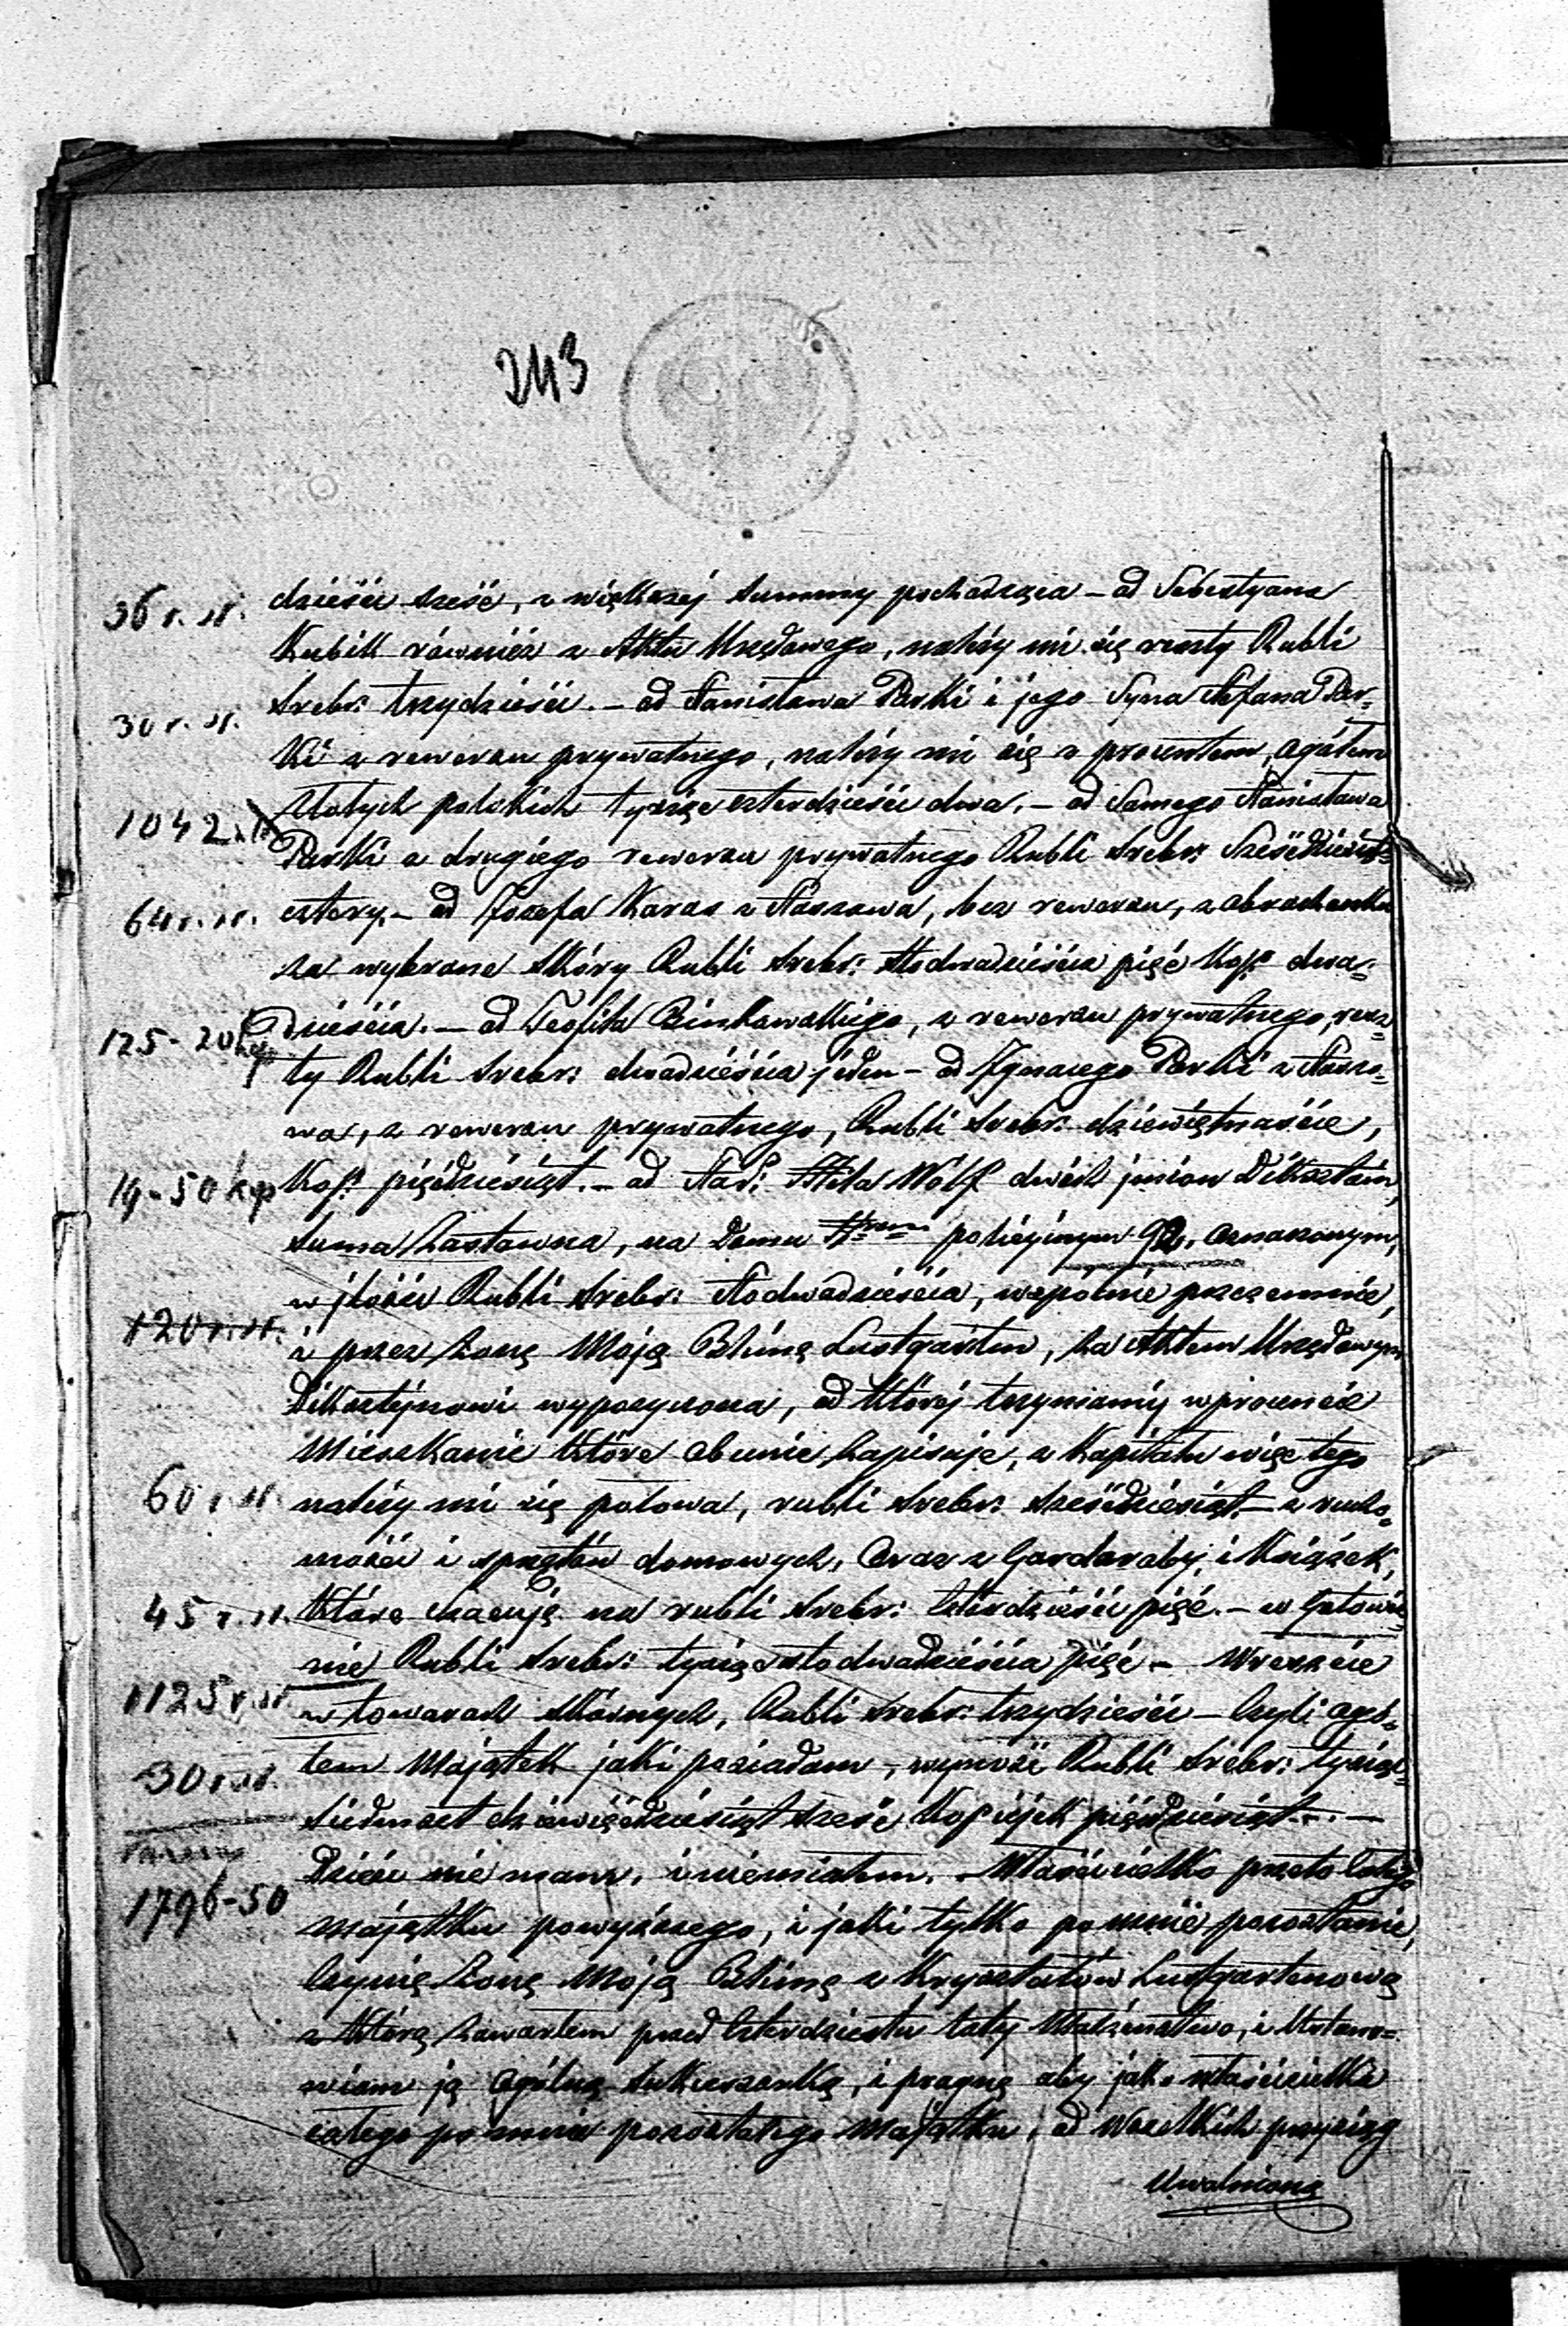 243
36 r. sr. dzieści sześć, z większej summy pochodząca – od Sebestyana
Kubik również z Aktu Urzędowego, należy mi się reszty Rubli
30 r. sr. Srebr: trzydzieści. – od Stanisława Parki i jego Syna Stefana Par=
ki z rewersu prywatnego, należy mi się z procentem, ogółem
1042 złotych polskich tysiąc czterdzieści dwa. – od Samego Stanisława
Parki z drugiego rewersu prywatnego Rubli Srebr: Sześćdziesiąt
64 r. sr. cztery. – od Józefa Karas z Staszowa, bez rewersu, z obrachunku
za wybrane skóry Rubli Srebr: stodwadzieścia pięć Kop: dwa=
125 - 20 kop dzieścia. – od Teofila Binkowskiego, z rewersu prywatnego, resz
ty Rubli Srebr: dwadzieścia jeden – od Ignacego Parki z Staszo=
wa, z rewersu prywatnego, Rubli Srebr: dziewiętnaście,
19 - 50 kop Kop: pięćdziesiąt. – od Star: Wolf dwóch imion
Suma Zastawna, na Domu policyjnym 92, oznaczonym,
w ilości Rubli Srebr: Stodwadzieścia, wspólnie przezemnie,
120 r. sr. i przez Żonę Moją Blimę Lustgarten, za Aktem Urzędowym
wypożyczona, od której trzymamy w procencie
Mieszkanie które obecnie zapisuje, z Kapitału więc tego
60 r. sr. należy mi się połowa, rubli srebr: sześćdziesiąt – z rucho=
mości i sprzętów domowych, Oraz z Garderoby, i Książek,
45 r. sr. które szacuję na rubli srebr: Czterdzieści pięć. – w Gotowiz=
nie Rubli Srebr: tysiąc stodwadzieścia pięć – Wreszcie
1125 r. sr. w towarach skórnych, Rubli Srebr: trzydzieści – Czyli ogó=
30 r. sr. łem Majątek jaki posiadam, wynosi Rubli Srebr: tysiąc
siedmset dziewięćdziesiąt sześć Kopiejek pięćdziesiąt. –
Dzieci nie mam, i niemiałem. – Właścicielką przeto całego
1796 - 50 majątku powyższego, i jaki tylko po mnie pozostanie,
Czynię Żonę Moją Blimę z Kryształów Lustgartenową
z którą zawarłem przed Czterdziestu laty Małżeństwo, i Ustano=
wiam ją Ogólną Sukcessorką, i pragnę aby jako właścicielka
całego po mnie pozostałego Majątku, od Wszelkich przysiąg
Uwolnioną